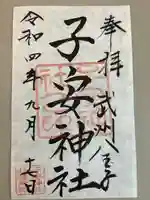 奉拝 武州八王子
子安神社
令和四年九月十七日